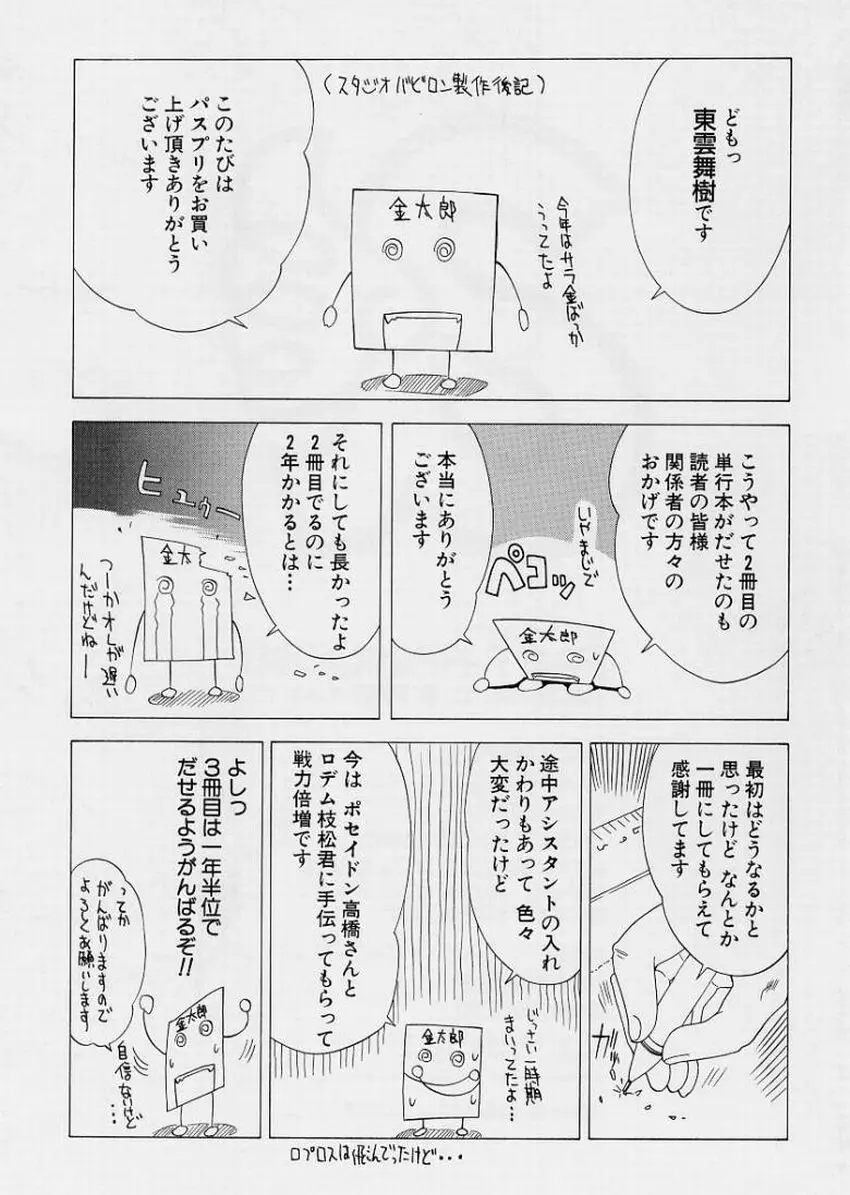 (スタジオバビロン製作後記)
どもっ
東雲舞樹です
今年はサラ金ばっか
うってたよ
金太郎
このたびは
パスプリをお買い
上げ頂きありがとう
ございます
こうやって2冊目の
単行本がだせたのも
読者の皆様
関係者の方々の
おかげです
いやまじで
ペコッ
金太郎
本当にありがとう
ございます
それにしても長かったよ
2冊目でるのに
2年かかるとは…
ヒュゥー
金太
つーかオレが遅い
んだけどねー
最初はどうなるかと
思ったけど なんとか
一冊にしてもらえて
感謝してます
ガッ
途中アシスタントの入れ
かわりもあって 色々
大変だったけど
じっさい一時期
まいってたよ…
金太郎
今は ポセイドン高橋さんと
ロデム枝松君に手伝ってもらって
戦力倍増です
ロプロスは飛んでったけど・・・
よしっ
3冊目は一年半位で
だせるようがんばるぞ!!
金太郎
ってか
がんばりますので
よろしくお願いします
自信ないけど
・・・